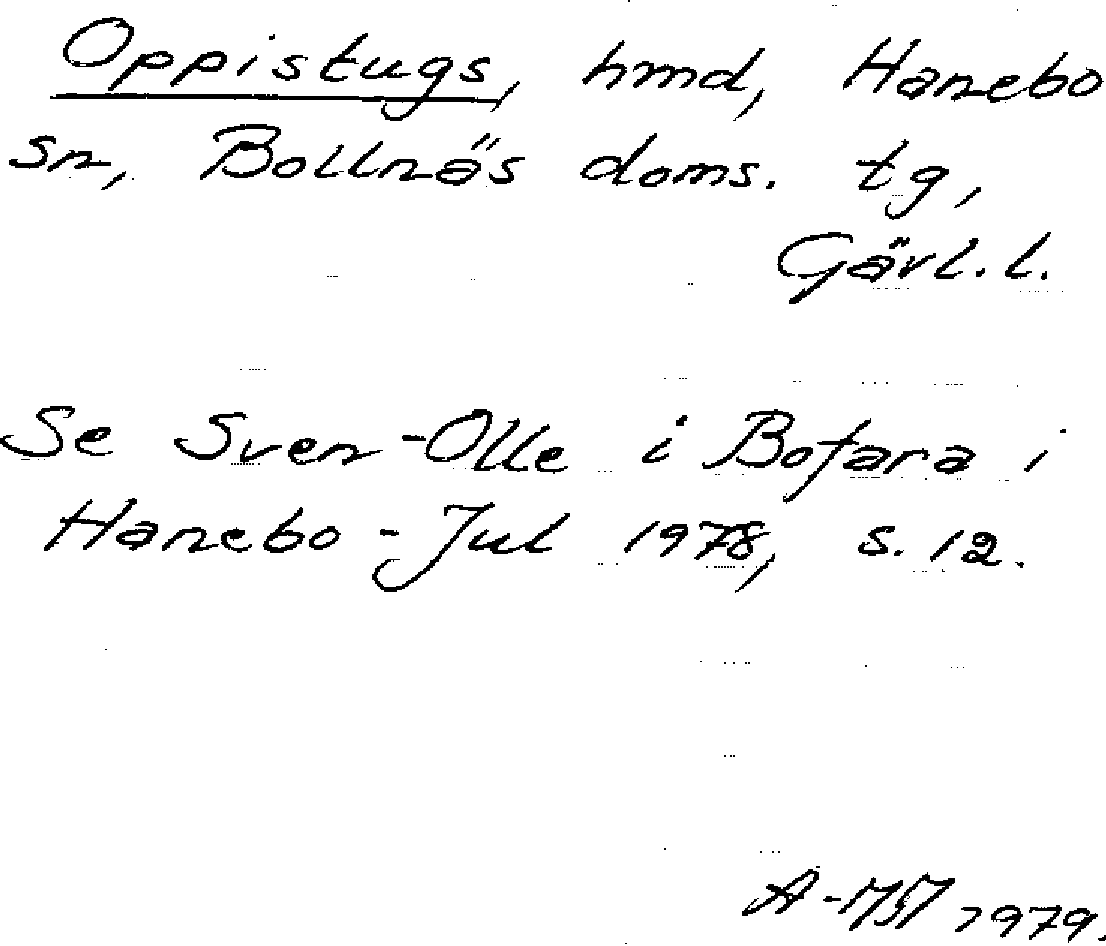 Oppistugs, hmd, Hanebo
sn, Bollnäs doms. tg,
Gävl. l.
Se Sven-Olle i Bofara i
Hanebo-Jul 1978, s. 12.
1979.